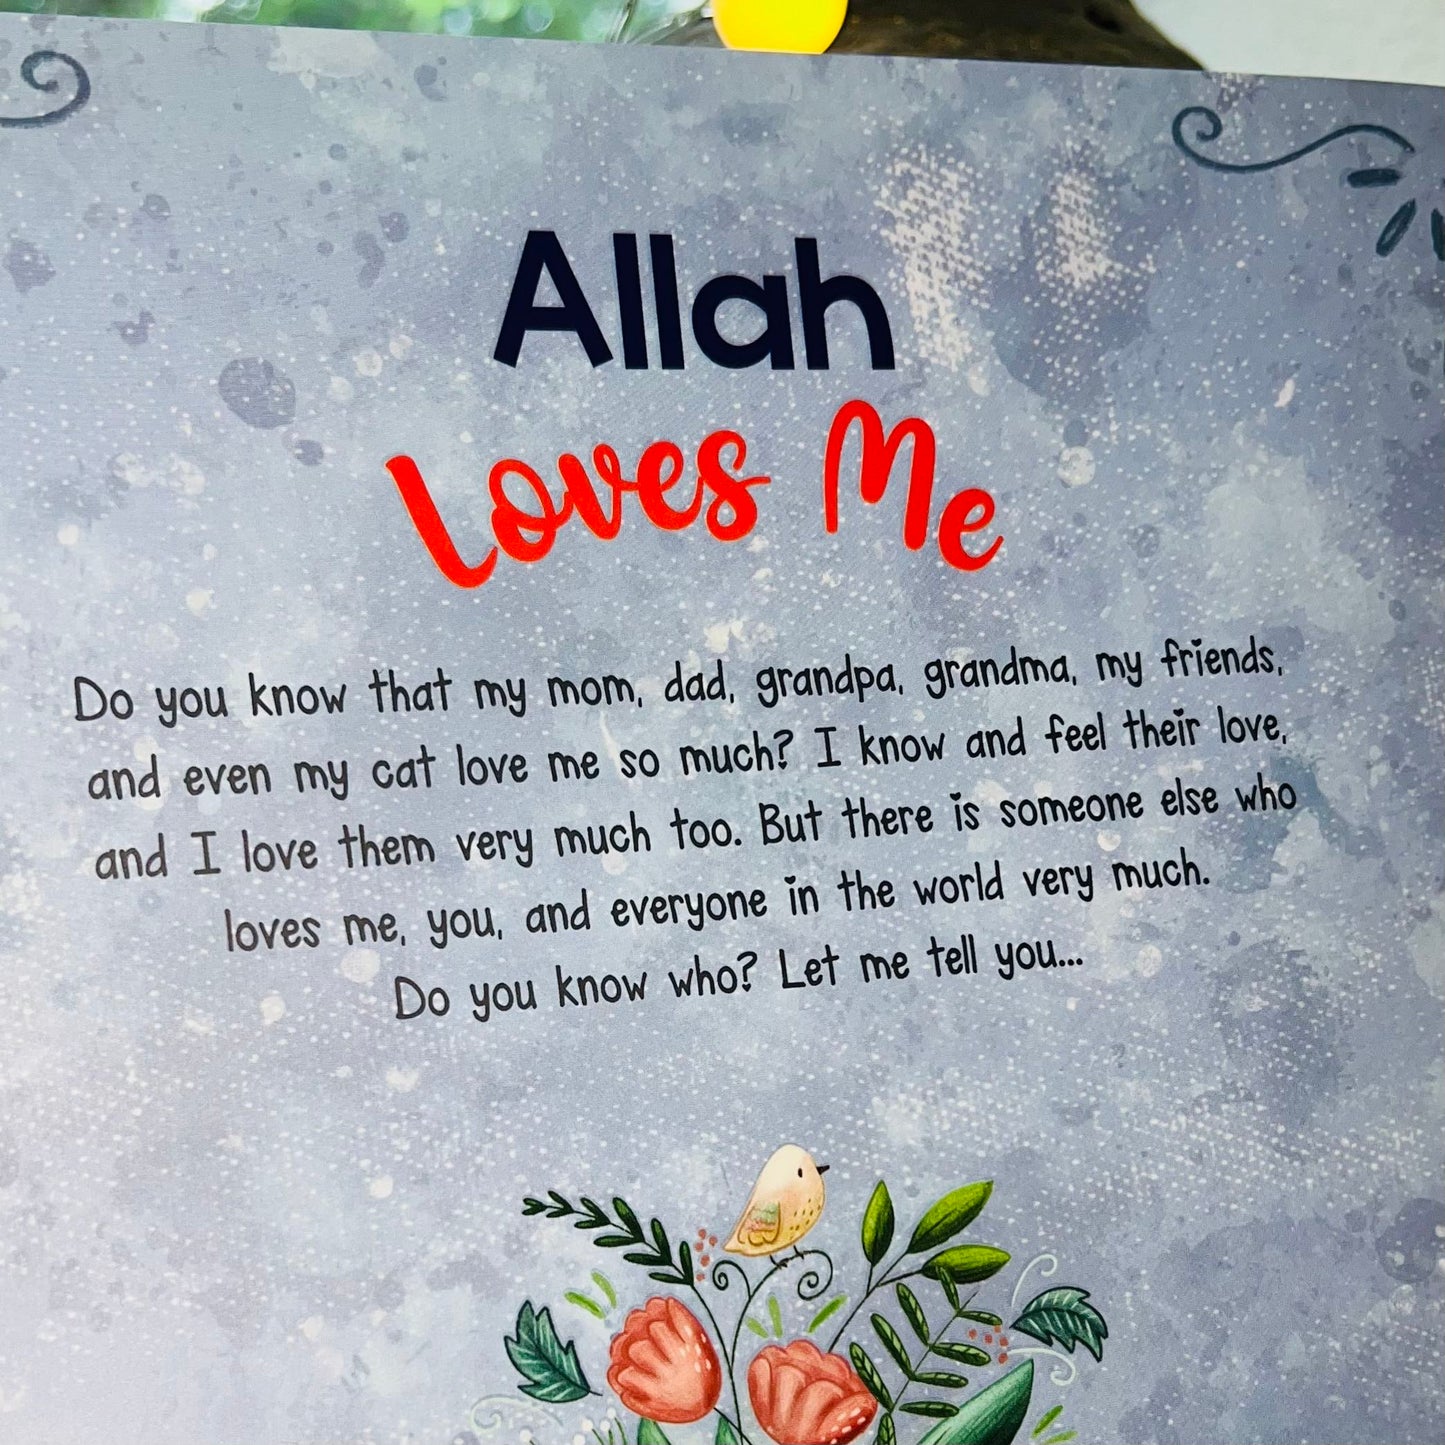 Allah
Loves Me
Do you know that my mom, dad, grandpa, grandma, my friends,
and even my cat love me so much? I know and feel their love,
and I love them very much too. But there is someone else who
loves me, you, and everyone in the world very much.
Do you know who? Let me tell you...